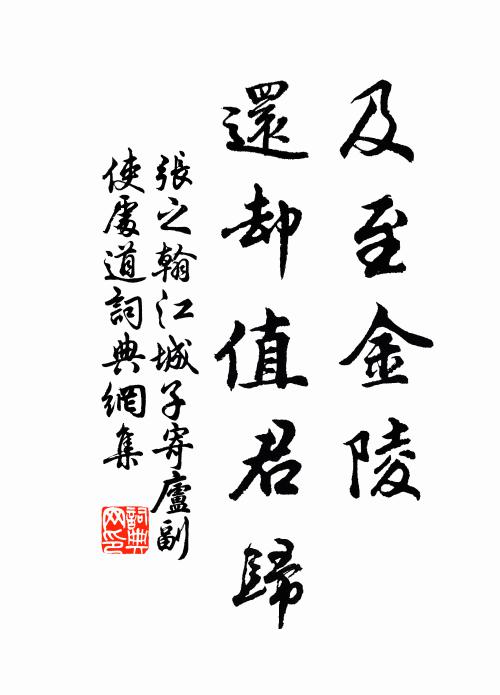 及至金陵
還却值君歸
張之翰江城子寄廬副
使處道詞典網集
詞典
网印